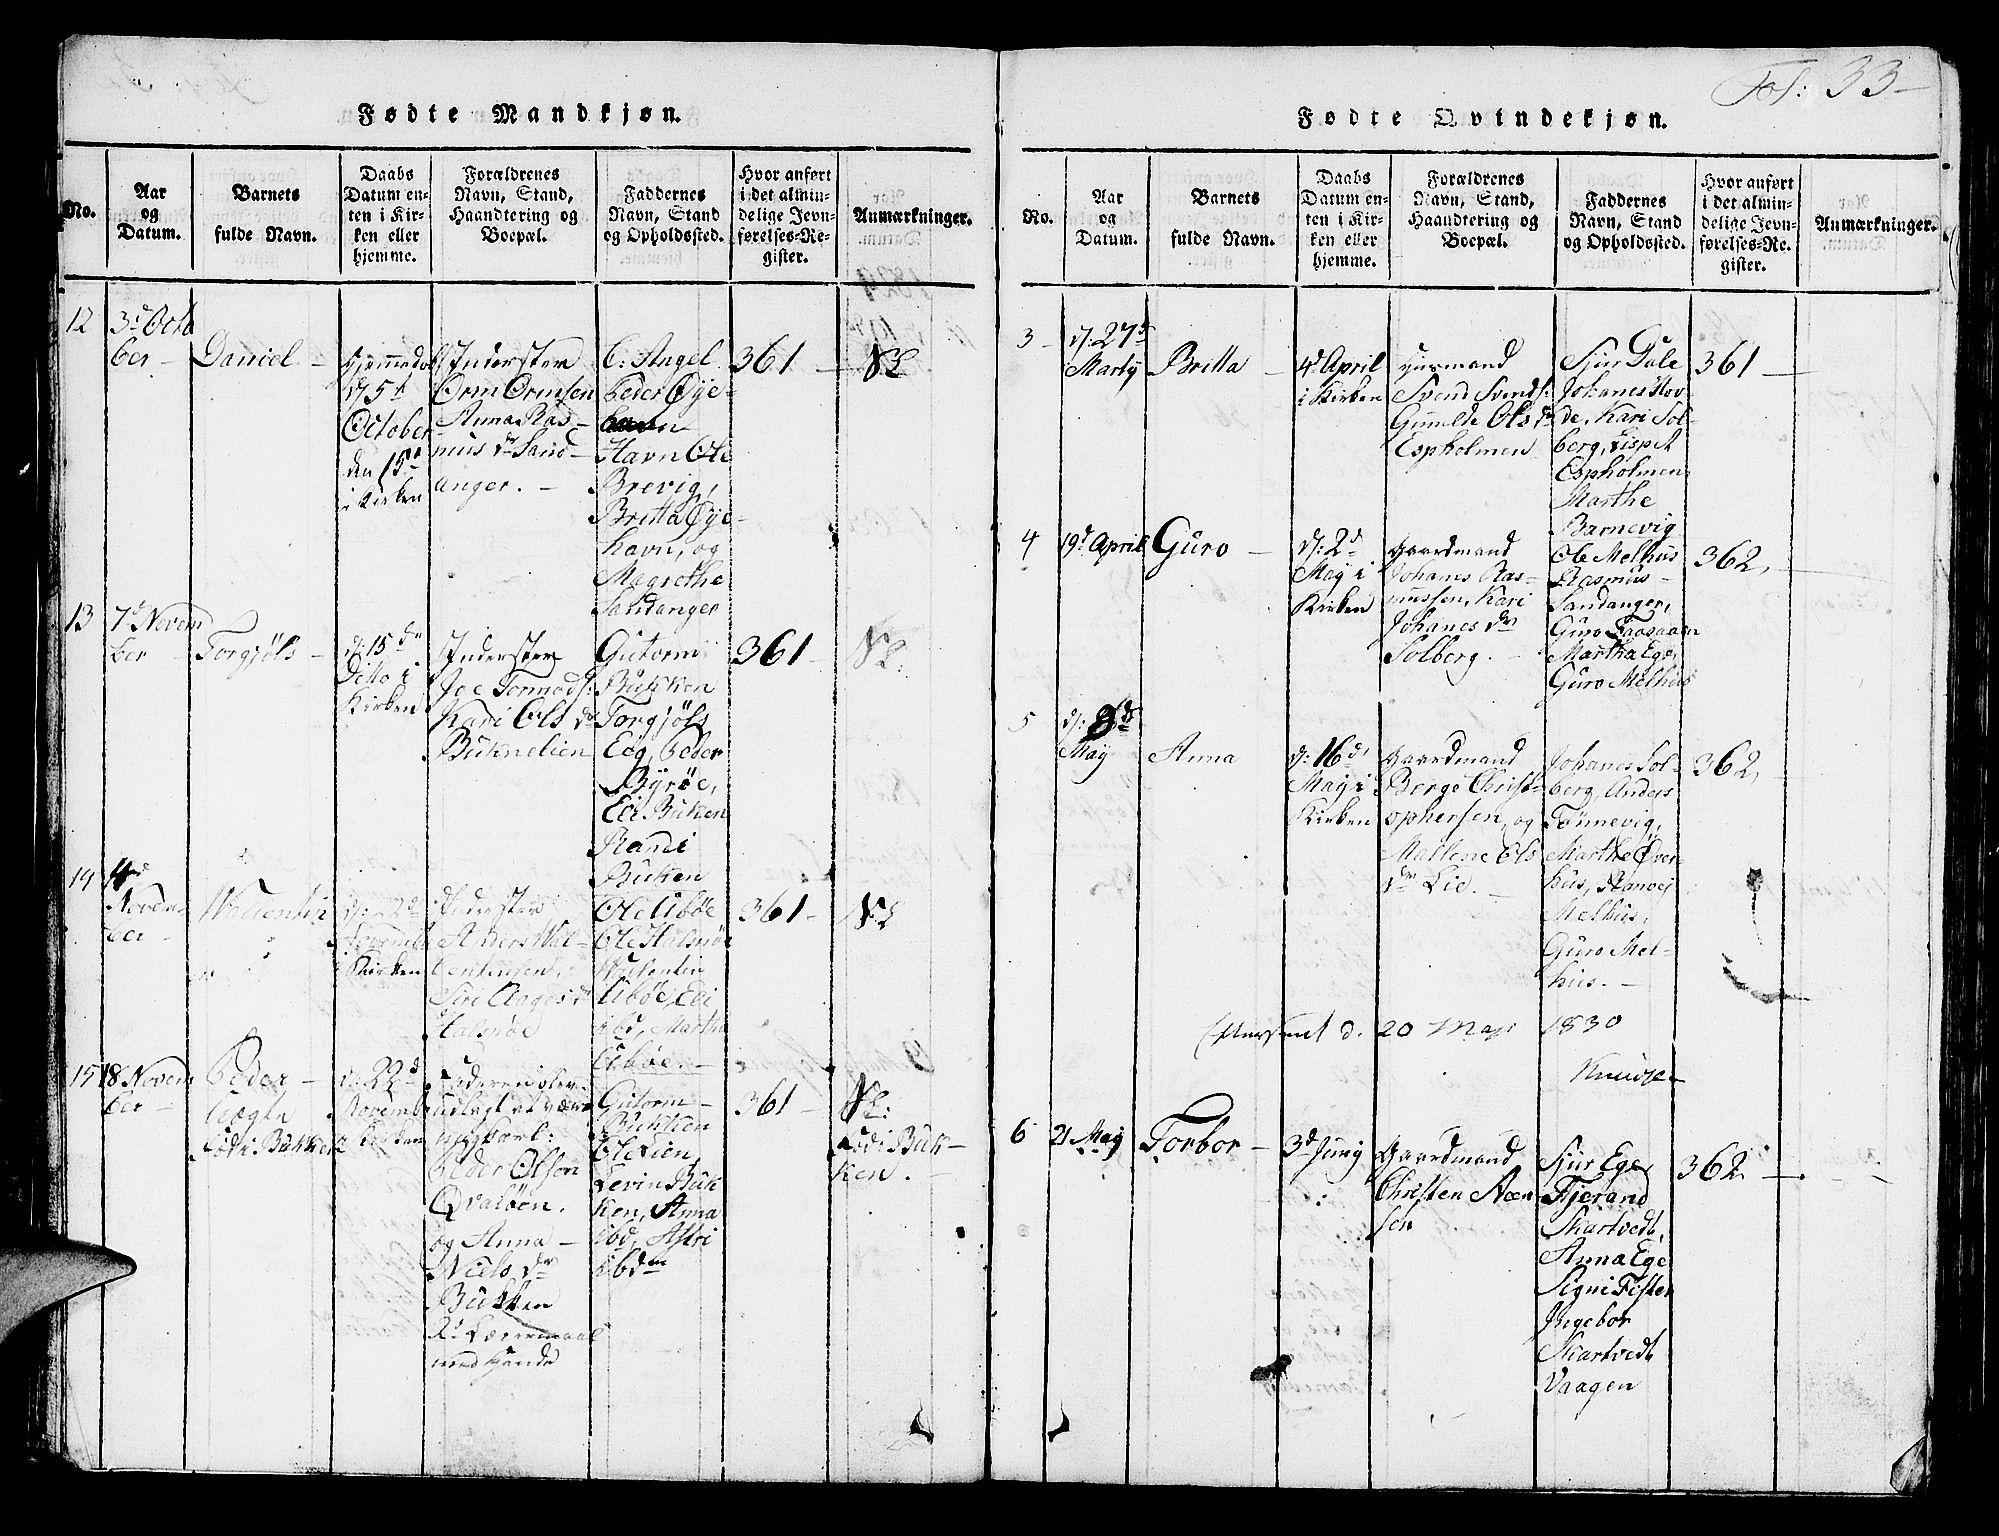 Fol: 33
Fødte Mandkjøn.
No.
Aar
og
Datum.
Barnets
fulde Navn.
Daabs
Datum en-
ten i Kir-
ken eller
hjemme.
Forældrenes
Navn, Stand,
Haandtering og
Boepæl.
Faddernes
Navn, Stand
og Opholdssted.
Hvor anført
i det almin-
delige Jevn-
førelses-Re-
gister.
Anmærkninger.
12
3d Octo
ber
Daniel
Hjemmedøbt
d: 5t
October
den 15d
i Kirken
Inderster
Orm Ormsen
Anna Ras-
mus dr Sand-
anger.
C: Angel
Peder Øye-
Havn Ole
Brevig,
Britta Øye-
havn, og
Magrethe
Sandanger
361
13
7d Novem
ber
Torgjøls
d: 15de
Ditto i
Kirken
Inderster
Joe Tormods:
Kari Ols dr
Buknelien
Gutorm
Bukken
Torgjøls
Eeg, Peder
Byrøe,
Eli Buken
Randi
Buken
361
14
Novem-
ber
Wallentin
d: 22d
Novemb
i Kirken
Inderster
Anders Wal-
lentinsen,
Siri Aages dr
Halsnøe
Ole Ubøe
Ole Halsnøe
Wallentin
Ubøe, Edi
ibd, Martha
Ubøe.
361
15
18 Novem
ber
Peder
Uægte
Født i Bukken
d: 22d
Novemb
i Kirken
Faderen blev
udlagt at være
ungkarl:
Peder Olson
Qvaløen.
og Anna
Niels dr
Bukken
2d Leiermaal
med hende
Gutorm
Bukken
Ole Lien,
Levin Buk
ken, Anna
ibd, Astri
ibdm
361
Fød i Buk-
ken.
Fødte Qvindekjøn.
No.
Aar
og
Datum.
Barnets
fulde Navn.
Daabs
Datum en-
ten i Kir-
ken eller
hjemme.
Forældrenes
Navn, Stand,
Haandtering og
Boepæl.
Faddernes
Navn, Stand
og Opholdssted.
Hvor anført
i det almin-
delige Jevn-
førelses-Re-
gister.
Anmærkninger.
3
d: 27d
Marty
Britta
4d April
i Kirken
Husmand
Svend Svends:
Gunilde Ols dr
Espholmen
Sjur Dale
Johanes Hov-
de, Kari Sol-
berg, Lispet
Espholmen
Marthe
Barnevig
361
4
19d April
Guro
d: 2d
May i
Kirken
Gaardmand
Johanes Ras-
mussen, Kari
Johanes dr
Solberg.
Ole Melhus
Rasmus
Sandanger,
Guro
Martha Ege,
Guro Melhus
362
5
d: 8de
May
Anna
d: 16d
May i
Kirken
Gaardmand
Børge Christ-
ophersen, og
Mallene Ols
dr Lie.
Johanes Sol-
berg, Anders
Tønnevig,
Marthe Øver-
hus, Ranvei
Melhus,
Guro Mel-
hus.
362
d. 20 May 1830
Knudsen
6
21 May
Torbor
3d Juny
Gaardmand
Christen Aaen-
sen
Sjur Ege
Tjerand
Skartvedt,
Anna Ege
Signi Fister
Ingebor
Skartvedt
Vaagen
362